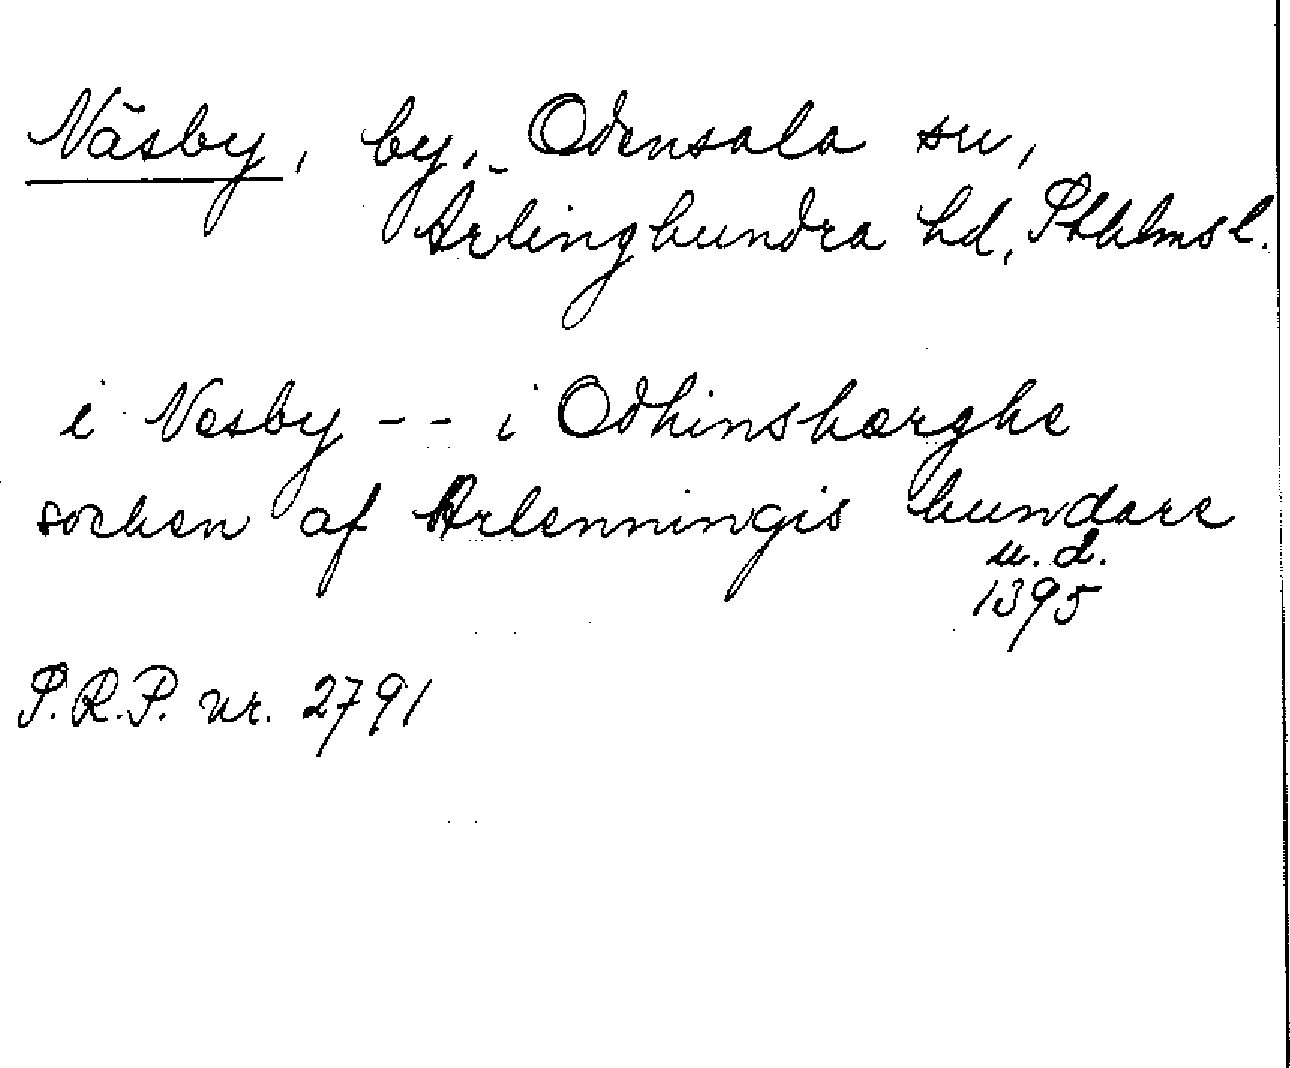 Näsby, by, Odensala sn,
Ärlinghundra hd, Sthlms l.
i Næsby -- i Odhinshærghe
sochen af Ærlenningis hundare
u. d.
1395
S.R.P. nr. 2791